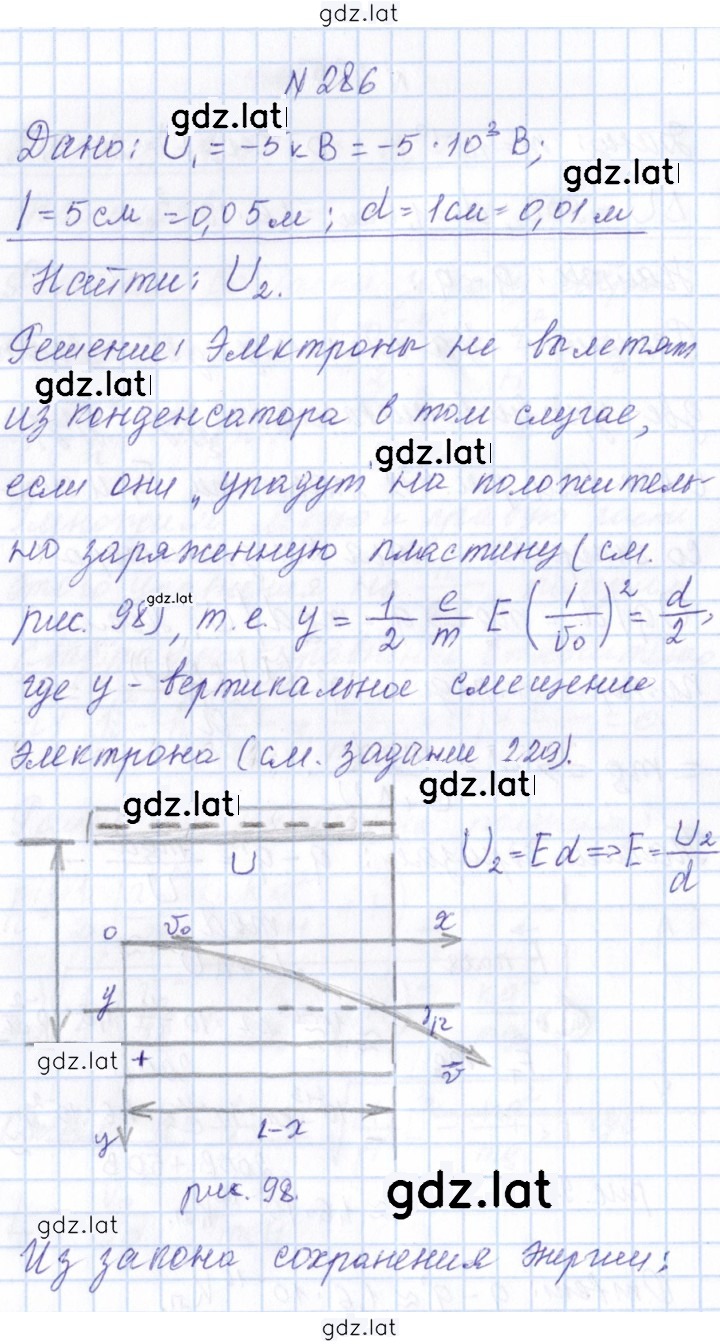 gdz.lat
N 286
gdz.lat
Дано: U₁ = -5 кВ = -5 · 10³ В;
gdz.lat
l = 5 см = 0,05 м; d = 1 см = 0,01 м
Найти: U₂.
Решение: Электроны не вылетят
gdz.lat
из конденсатора в том случае,
gdz.lat
если они "упадут" на положитель-
но заряженную пластину (см.
gdz.lat
рис. 98), т.е. y = 1/2 e/m E (l/v₀)² = d/2,
где y - вертикальное смещение
электрона (см. задание 229).
gdz.lat
gdz.lat
U
U₂ = Ed => E = U₂/d
0
v₀
x
y
gdz.lat
+
v
L-x
y
рис. 98.
gdz.lat
gdz.lat
Из закона сохранения энергии:
gdz.lat